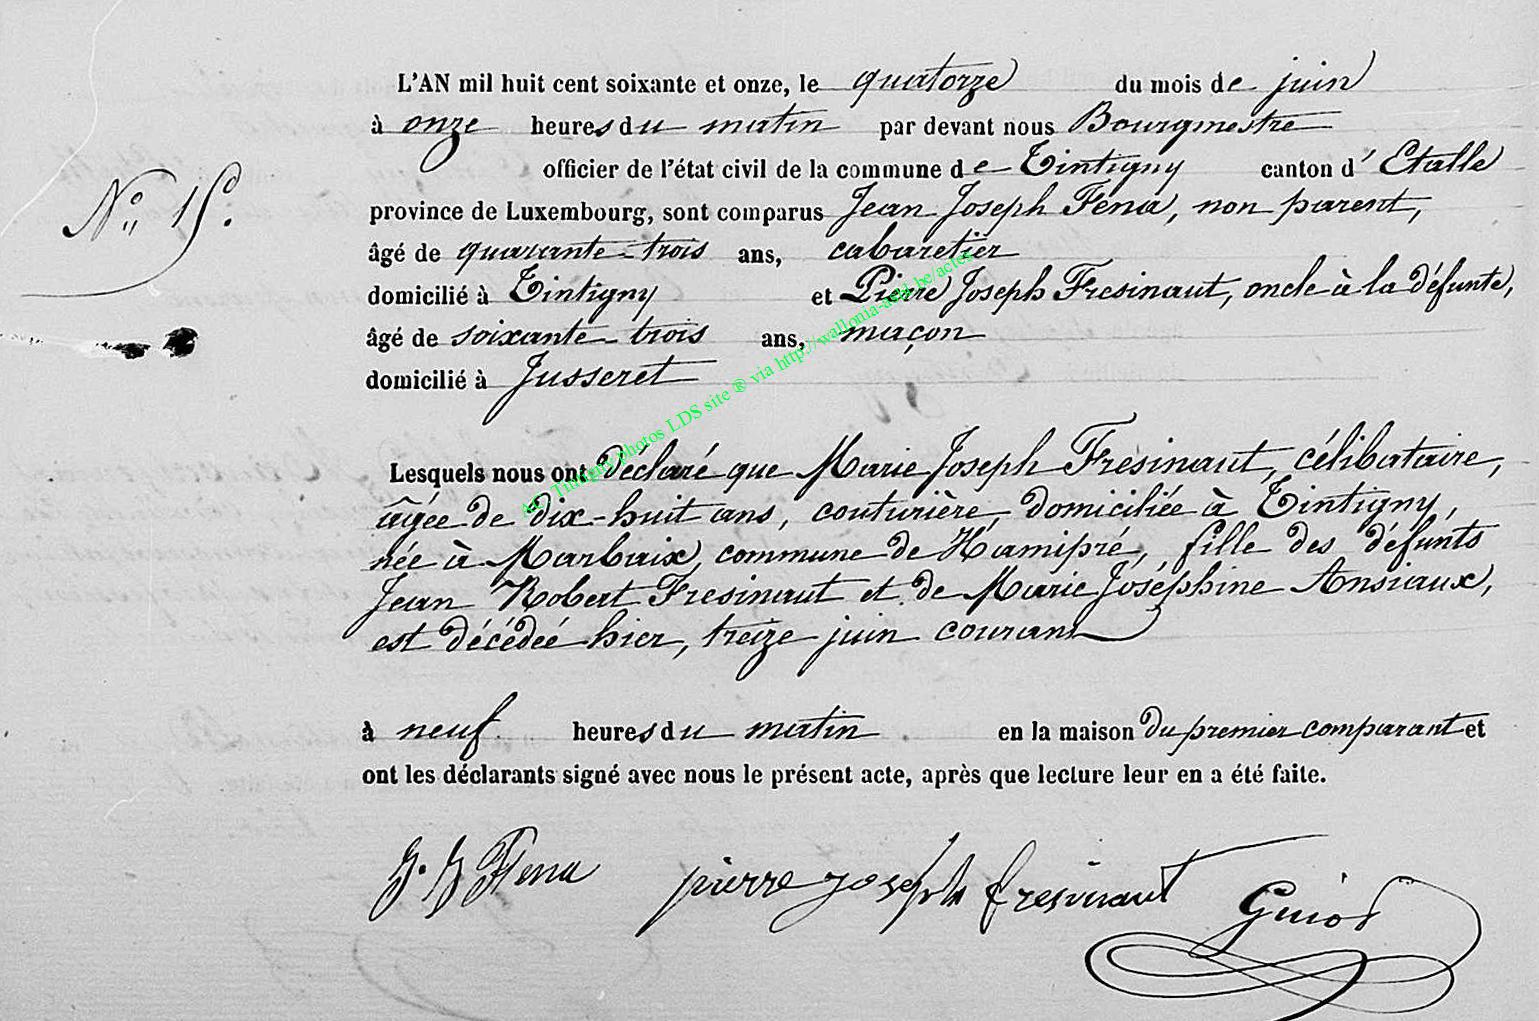 L'AN mil huit cent soixante et onze, le quatorze du mois de juin
à onze heures du matin par devant nous Bourgmestre
officier de l'état civil de la commune de Tintigny canton d'Etalle
N° 15.
province de Luxembourg, sont comparus Jean Joseph Fena, non parent,
âgé de quarante-trois ans, cabaretier
domicilié à Tintigny et Pierre Joseph Fresinaut, oncle à la défunte,
âgé de soixante-trois ans, maçon
domicilié à Jusseret
AC Tintigny photos LDS site ® via http://wallonia-asbl.be/actes
Lesquels nous ont déclaré que Marie Joseph Fresinaut, célibataire,
âgée de dix-huit ans, couturière, domiciliée à Tintigny,
née à Marbaix, commune de Hamipré, fille des défunts
Jean Robert Fresinaut et de Marie Joséphine Ansiaux,
est décédée hier, treize juin courant
à neuf heures du matin en la maison du premier comparant et
ont les déclarants signé avec nous le présent acte, après que lecture leur en a été faite.
J. J Fena pierre joseph fresinaut Guiot